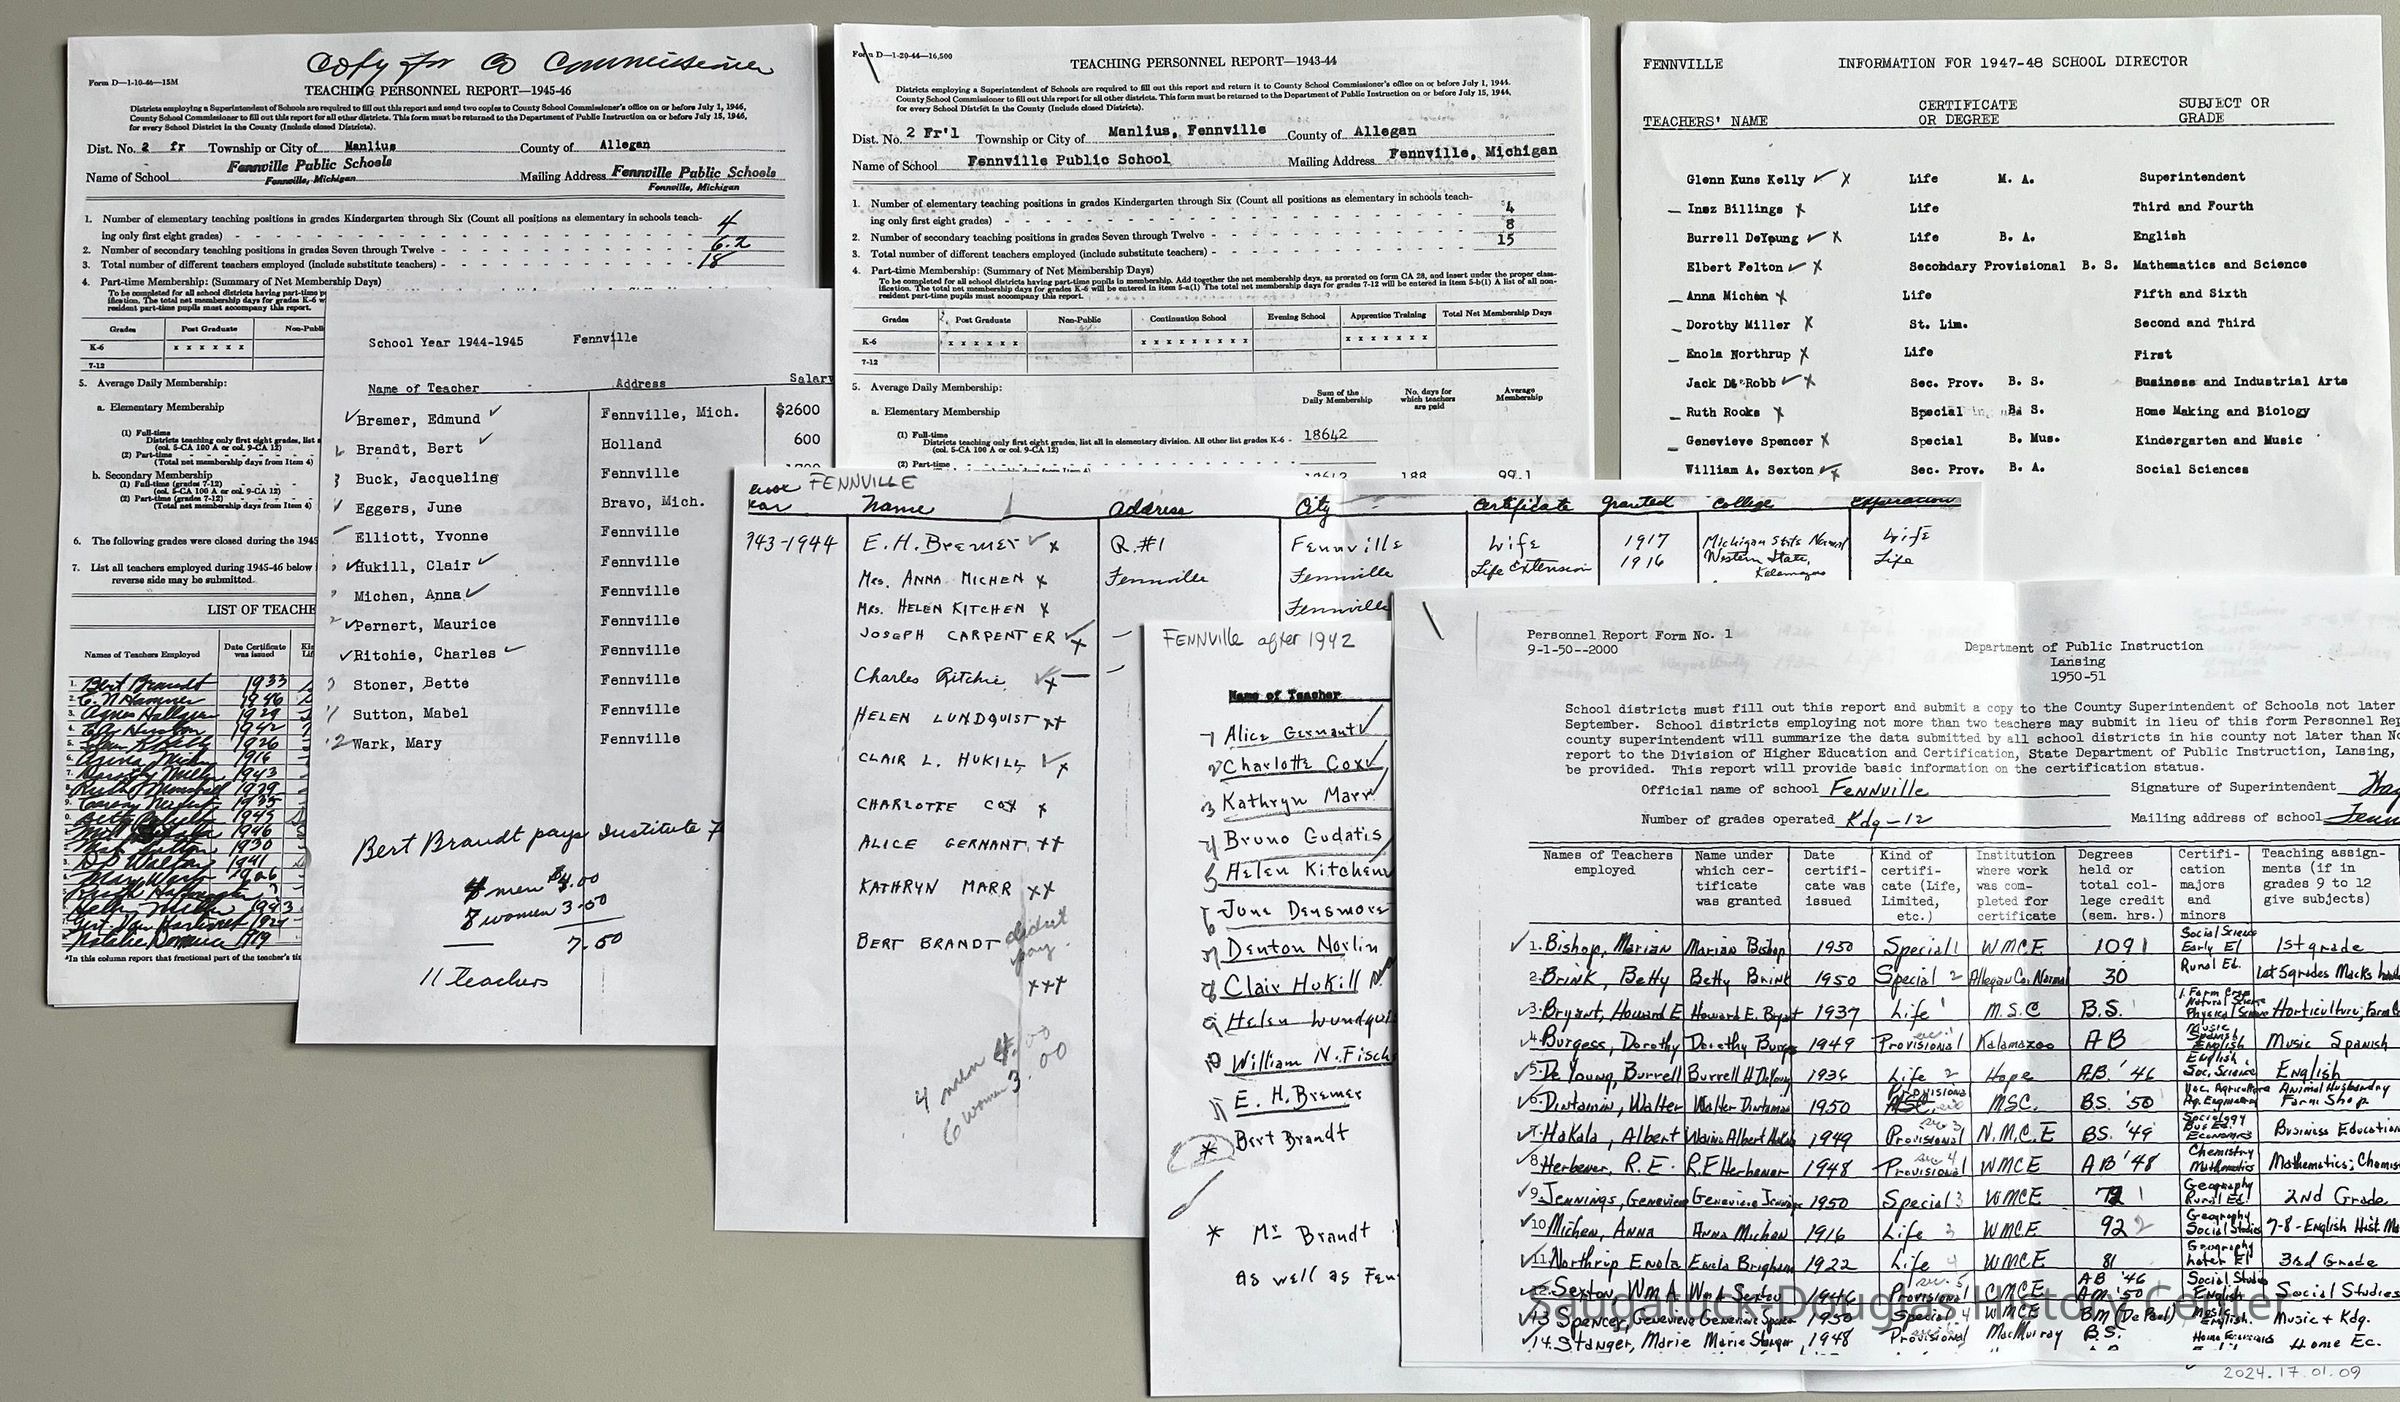 Copy for Co Commissioner
Form D—1-10-46—15M
TEACHING PERSONNEL REPORT—1945-46
Districts employing a Superintendent of Schools are required to fill out this report and send two copies to County School Commissioner's office on or before July 1, 1946,
County School Commissioner to fill out this report for all other districts. This form must be returned to the Department of Public Instruction on or before July 15, 1946,
for every School District in the County (Include closed Districts).
Dist. No. 2 fr Township or City of Manlius County of Allegan
Name of School Fennville Public Schools Mailing Address Fennville Public Schools
Fennville, Michigan Fennville, Michigan
1. Number of elementary teaching positions in grades Kindergarten through Six (Count all positions as elementary in schools teach-
ing only first eight grades) 4
2. Number of secondary teaching positions in grades Seven through Twelve 6.2
3. Total number of different teachers employed (include substitute teachers) 18
4. Part-time Membership: (Summary of Net Membership Days)
To be completed for all school districts having part-time
ification. The total net membership days for grades K-6
resident part-time pupils must accompany this report.
Grades Post Graduate
K-6 x x x x x x
7-12
5. Average Daily Membership:
a. Elementary Membership
(1) Full-time
Districts teaching only first eight grades, list
(col. 5-CA 100 A or col. 9-CA 12)
(2) Part-time
(Total net membership days from Item 4)
b. Secondary Membership
(1) Full-time (grades 7-12)
(col. 5-CA 100 A or col. 9-CA 12)
(2) Part-time (grades 7-12)
(Total net membership days from Item 4)
6. The following grades were closed during the 1945
7. List all teachers employed during 1945-46 below
reverse side may be submitted
LIST OF TEACHE
Names of Teachers Employed Date Certificate was issued
1. Bert Brandt 1933
2. 1946
3. 1929
4. 1942
5. 1926
6. 1916
7. Dorothy Miller 1943
8. 1929
9. 1935
1945
1946
1930
1941
Mary Wark 1906
1943
1919
*In this column report that fractional part of the teacher's
School Year 1944-1945 Fennville
Name of Teacher Address Salary
Bremer, Edmund Fennville, Mich. $2600
Brandt, Bert Holland 600
Buck, Jacqueling Fennville
Eggers, June Bravo, Mich.
Elliott, Yvonne Fennville
Hukill, Clair Fennville
Michen, Anna Fennville
Pernert, Maurice Fennville
Ritchie, Charles Fennville
Stoner, Bette Fennville
Sutton, Mabel Fennville
Wark, Mary Fennville
Bert Brandt pays Institute
4 men $4.00
8 women 3.50
7.50
11 teachers
Form D—1-20-44—16,500
TEACHING PERSONNEL REPORT—1943-44
Districts employing a Superintendent of Schools are required to fill out this report and return it to County School Commissioner's office on or before July 1, 1944.
County School Commissioner to fill out this report for all other districts. This form must be returned to the Department of Public Instruction on or before July 15, 1944,
for every School District in the County (Include closed Districts).
Dist. No. 2 Fr'l Township or City of Manlius, Fennville County of Allegan
Name of School Fennville Public School Mailing Address Fennville, Michigan
1. Number of elementary teaching positions in grades Kindergarten through Six (Count all positions as elementary in schools teach-
ing only first eight grades) 4
2. Number of secondary teaching positions in grades Seven through Twelve 8
3. Total number of different teachers employed (include substitute teachers) 15
4. Part-time Membership: (Summary of Net Membership Days)
To be completed for all school districts having part-time pupils in membership. Add together the net membership days, as prorated on form CA 28, and insert under the proper class-
ification. The total net membership days for grades K-6 will be entered in item 5-a(1) The total net membership days for grades 7-12 will be entered in item 5-b(1) A list of all non-
resident part-time pupils must accompany this report.
Grades Post Graduate Non-Public Continuation School Evening School Apprentice Training Total Net Membership Days
K-6 x x x x x x x x x x x x x x x x x x x x x x
7-12
5. Average Daily Membership:
Sum of the Daily Membership No. days for which teachers are paid Average Membership
a. Elementary Membership
(1) Full-time
Districts teaching only first eight grades, list all in elementary division. All other list grades K-6 - 18642
(col. 5-CA 100 A or col. 9-CA 12)
(2) Part-time
188 99.1
FENNVILLE
Name Address City Certificate Granted College Expiration
943-1944 E. H. Bremer R. #1 Fennville Life 1917 Michigan State Normal Life
Mrs. ANNA MICHEN Fennville Fennville Life Extension 1916 Western State, Kalamazoo Life
Mrs. HELEN KITCHEN Fennville
JOSEPH CARPENTER
Charles Ritchie
HELEN LUNDQUIST
CLAIR L. HUKILL
CHARLOTTE COX
ALICE GERNANT
KATHRYN MARR
BERT BRANDT didn't pay.
4 men 4.00
6 women 3.00
FENNVILLE INFORMATION FOR 1947-48 SCHOOL DIRECTOR
TEACHERS' NAME CERTIFICATE OR DEGREE SUBJECT OR GRADE
Glenn Kuns Kelly Life M. A. Superintendent
Inez Billings Life Third and Fourth
Burrell DeYoung Life B. A. English
Elbert Felton Secondary Provisional B. S. Mathematics and Science
Anna Michen Life Fifth and Sixth
Dorothy Miller St. Lim. Second and Third
Enola Northrup Life First
Jack D. Robb Sec. Prov. B. S. Business and Industrial Arts
Ruth Rooks Special B. S. Home Making and Biology
Genevieve Spencer Special B. Mus. Kindergarten and Music
William A. Sexton Sec. Prov. B. A. Social Sciences
FENNVILLE after 1942
Name of Teacher
1 Alice Gernant
2 Charlotte Cox
3 Kathryn Marr
4 Bruno Gudatis
5 Helen Kitchen
6 June Densmore
7 Denton Norlin
8 Clair Hukill
9 Helen Lundqui
10 William N. Fisch
11 E. H. Bremer
* Bert Brandt
* Mr Brandt
as well as Fen
Personnel Report Form No. 1
9-1-50--2000
Department of Public Instruction
Lansing
1950-51
School districts must fill out this report and submit a copy to the County Superintendent of Schools not later
September. School districts employing not more than two teachers may submit in lieu of this form Personnel Rep
county superintendent will summarize the data submitted by all school districts in his county not later than No
report to the Division of Higher Education and Certification, State Department of Public Instruction, Lansing,
be provided. This report will provide basic information on the certification status.
Official name of school Fennville Signature of Superintendent
Number of grades operated Kdg-12 Mailing address of school Fenn
Names of Teachers employed Name under which certificate was granted Date certificate was issued Kind of certificate (Life, Limited, etc.) Institution where work was completed for certificate Degrees held or total college credit (sem. hrs.) Certification majors and minors Teaching assignments (if in grades 9 to 12 give subjects)
1. Bishop, Marian Marian Bishop 1950 Special 1 WMCE 109 1 Social Science Early El 1st grade
2. Brink, Betty Betty Brink 1950 Special 2 Allegan Co. Normal 30 Rural Ed.
3. Bryant, Howard E Howard E. Bryant 1937 Life 1 M.S.C B.S. Farm Crop Natural Science Physical Science Horticulture; Farm C
4. Burgess, Dorothy Dorothy Burge 1949 Provisional Kalamazoo AB Music Spanish English Music Spanish
5. De Young, Burrell Burrell H DeYoung 1936 Life 2 Hope A.B. '46 English, Soc. Science English
6. Dintamin, Walter Walter Dintaman 1950 Provisional MSC. BS. '50 Voc. Agriculture Ag. Engineering Animal Husbandry Farm Shop
7. Hakala, Albert Waino Albert Hakala 1949 Provisional N.M.C.E BS. '49 Sociology Bus Ed Economics Business Education
8. Herbener, R. E. R.E Herbener 1948 Provisional WMCE AB '48 Chemistry Mathematics Mathematics; Chemis
9. Jennings, Genevieve Genevieve Jennings 1950 Special 3 WMCE 72 1 Geography Rural Ed. 2nd Grade
10 Michen, Anna Anna Michen 1916 Life 3 WMCE 92 2 Geography Social Studies 7-8-English Hist Ma
11 Northrup Enola Enola Brigham 1922 Life 4 WMCE 81 Geography Later El 3rd Grade
12. Sexton, Wm A Wm A Sexton 1946 Provisional CMCE AB '46 AM '50 Social Studies English Social Studies
13 Spencer, Genevieve Genevieve Spencer 1950 Special 4 WMCE BM (De Paul) Music English. Music + Kdg.
14. Stanger, Marie Marie Stanger 1948 Provisional MacMurray B.S. Home Economics Home Ec.
Saugatuck-Douglas History Center
2024.17.01.09